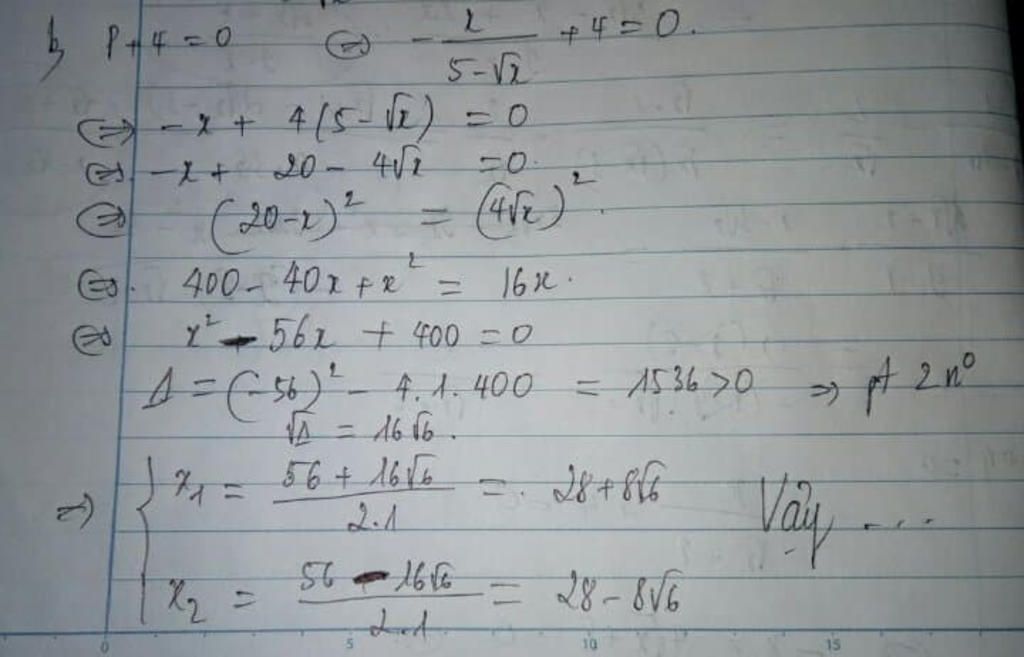 b, P + 4 = 0 ⇔ - x/(5-√x) + 4 = 0.
⇔ -x + 4(5-√x) = 0
⇔ -x + 20 - 4√x = 0.
⇔ (20-x)² = (4√x)².
⇔ 400 - 40x + x² = 16x.
⇔ x² - 56x + 400 = 0
Δ = (-56)² - 4.1.400 = 1536 > 0 ⇒ pt 2 n⁰
√Δ = 16√6.
⇒ { x₁ = (56 + 16√6)/(2.1) = 28 + 8√6 Vậy ....
x₂ = (56 - 16√6)/(2.1) = 28 - 8√6
0 5 10 15